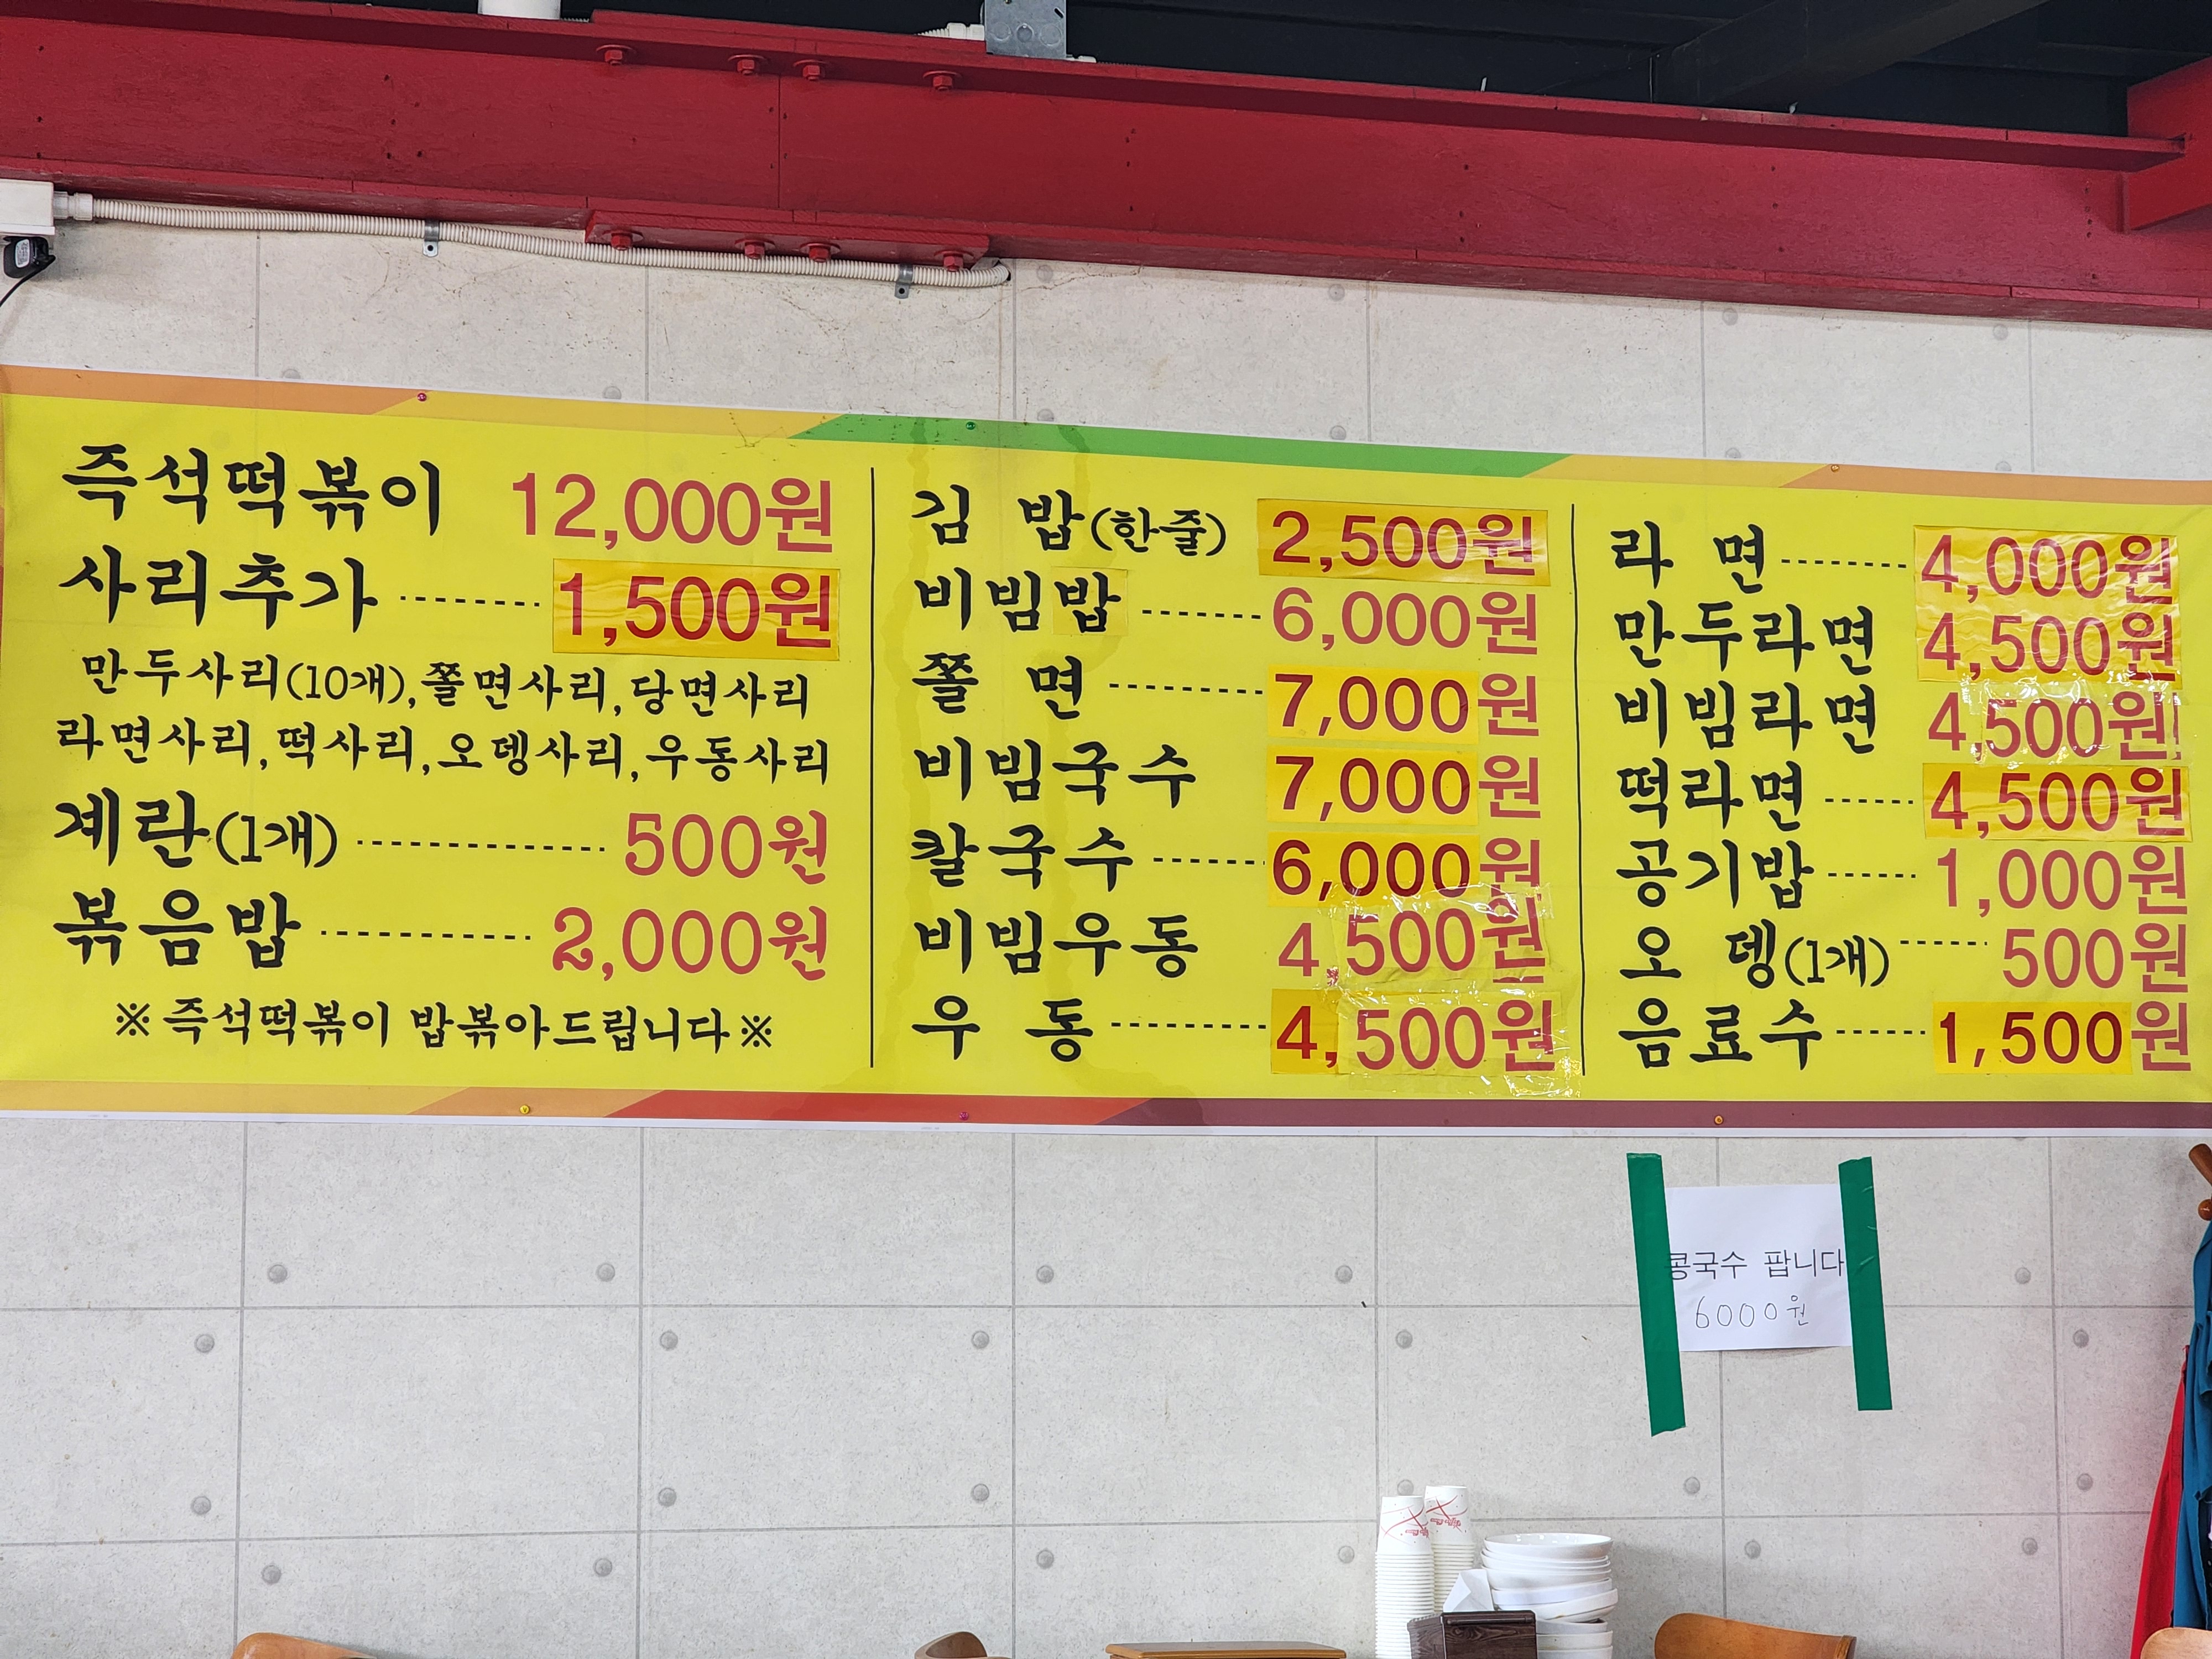 즉석떡볶이 12,000원
사리추가 -------- 1,500원
만두사리(10개),쫄면사리,당면사리
라면사리,떡사리,오뎅사리,우동사리
계란(1개) -------------- 500원
볶음밥 ------------ 2,000원
※즉석떡볶이 밥볶아드립니다※
김 밥(한줄) 2,500원
비빔밥 ------- 6,000원
쫄 면 --------- 7,000원
비빔국수 7,000원
칼국수 ------- 6,000원
비빔우동 4,500원
우 동 --------- 4,500원
라 면 -------- 4,000원
만두라면 4,500원
비빔라면 4,500원
떡라면 ------ 4,500원
공기밥 ------ 1,000원
오 뎅(1개) ------ 500원
음료수 ------ 1,500원
콩국수 팝니다
6000원